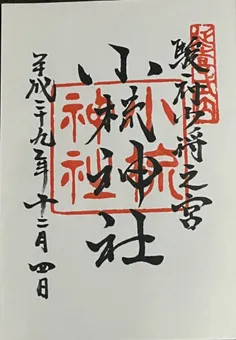 駿府少将之宮
小梳神社
小梳神社
平成二九年十二月四日